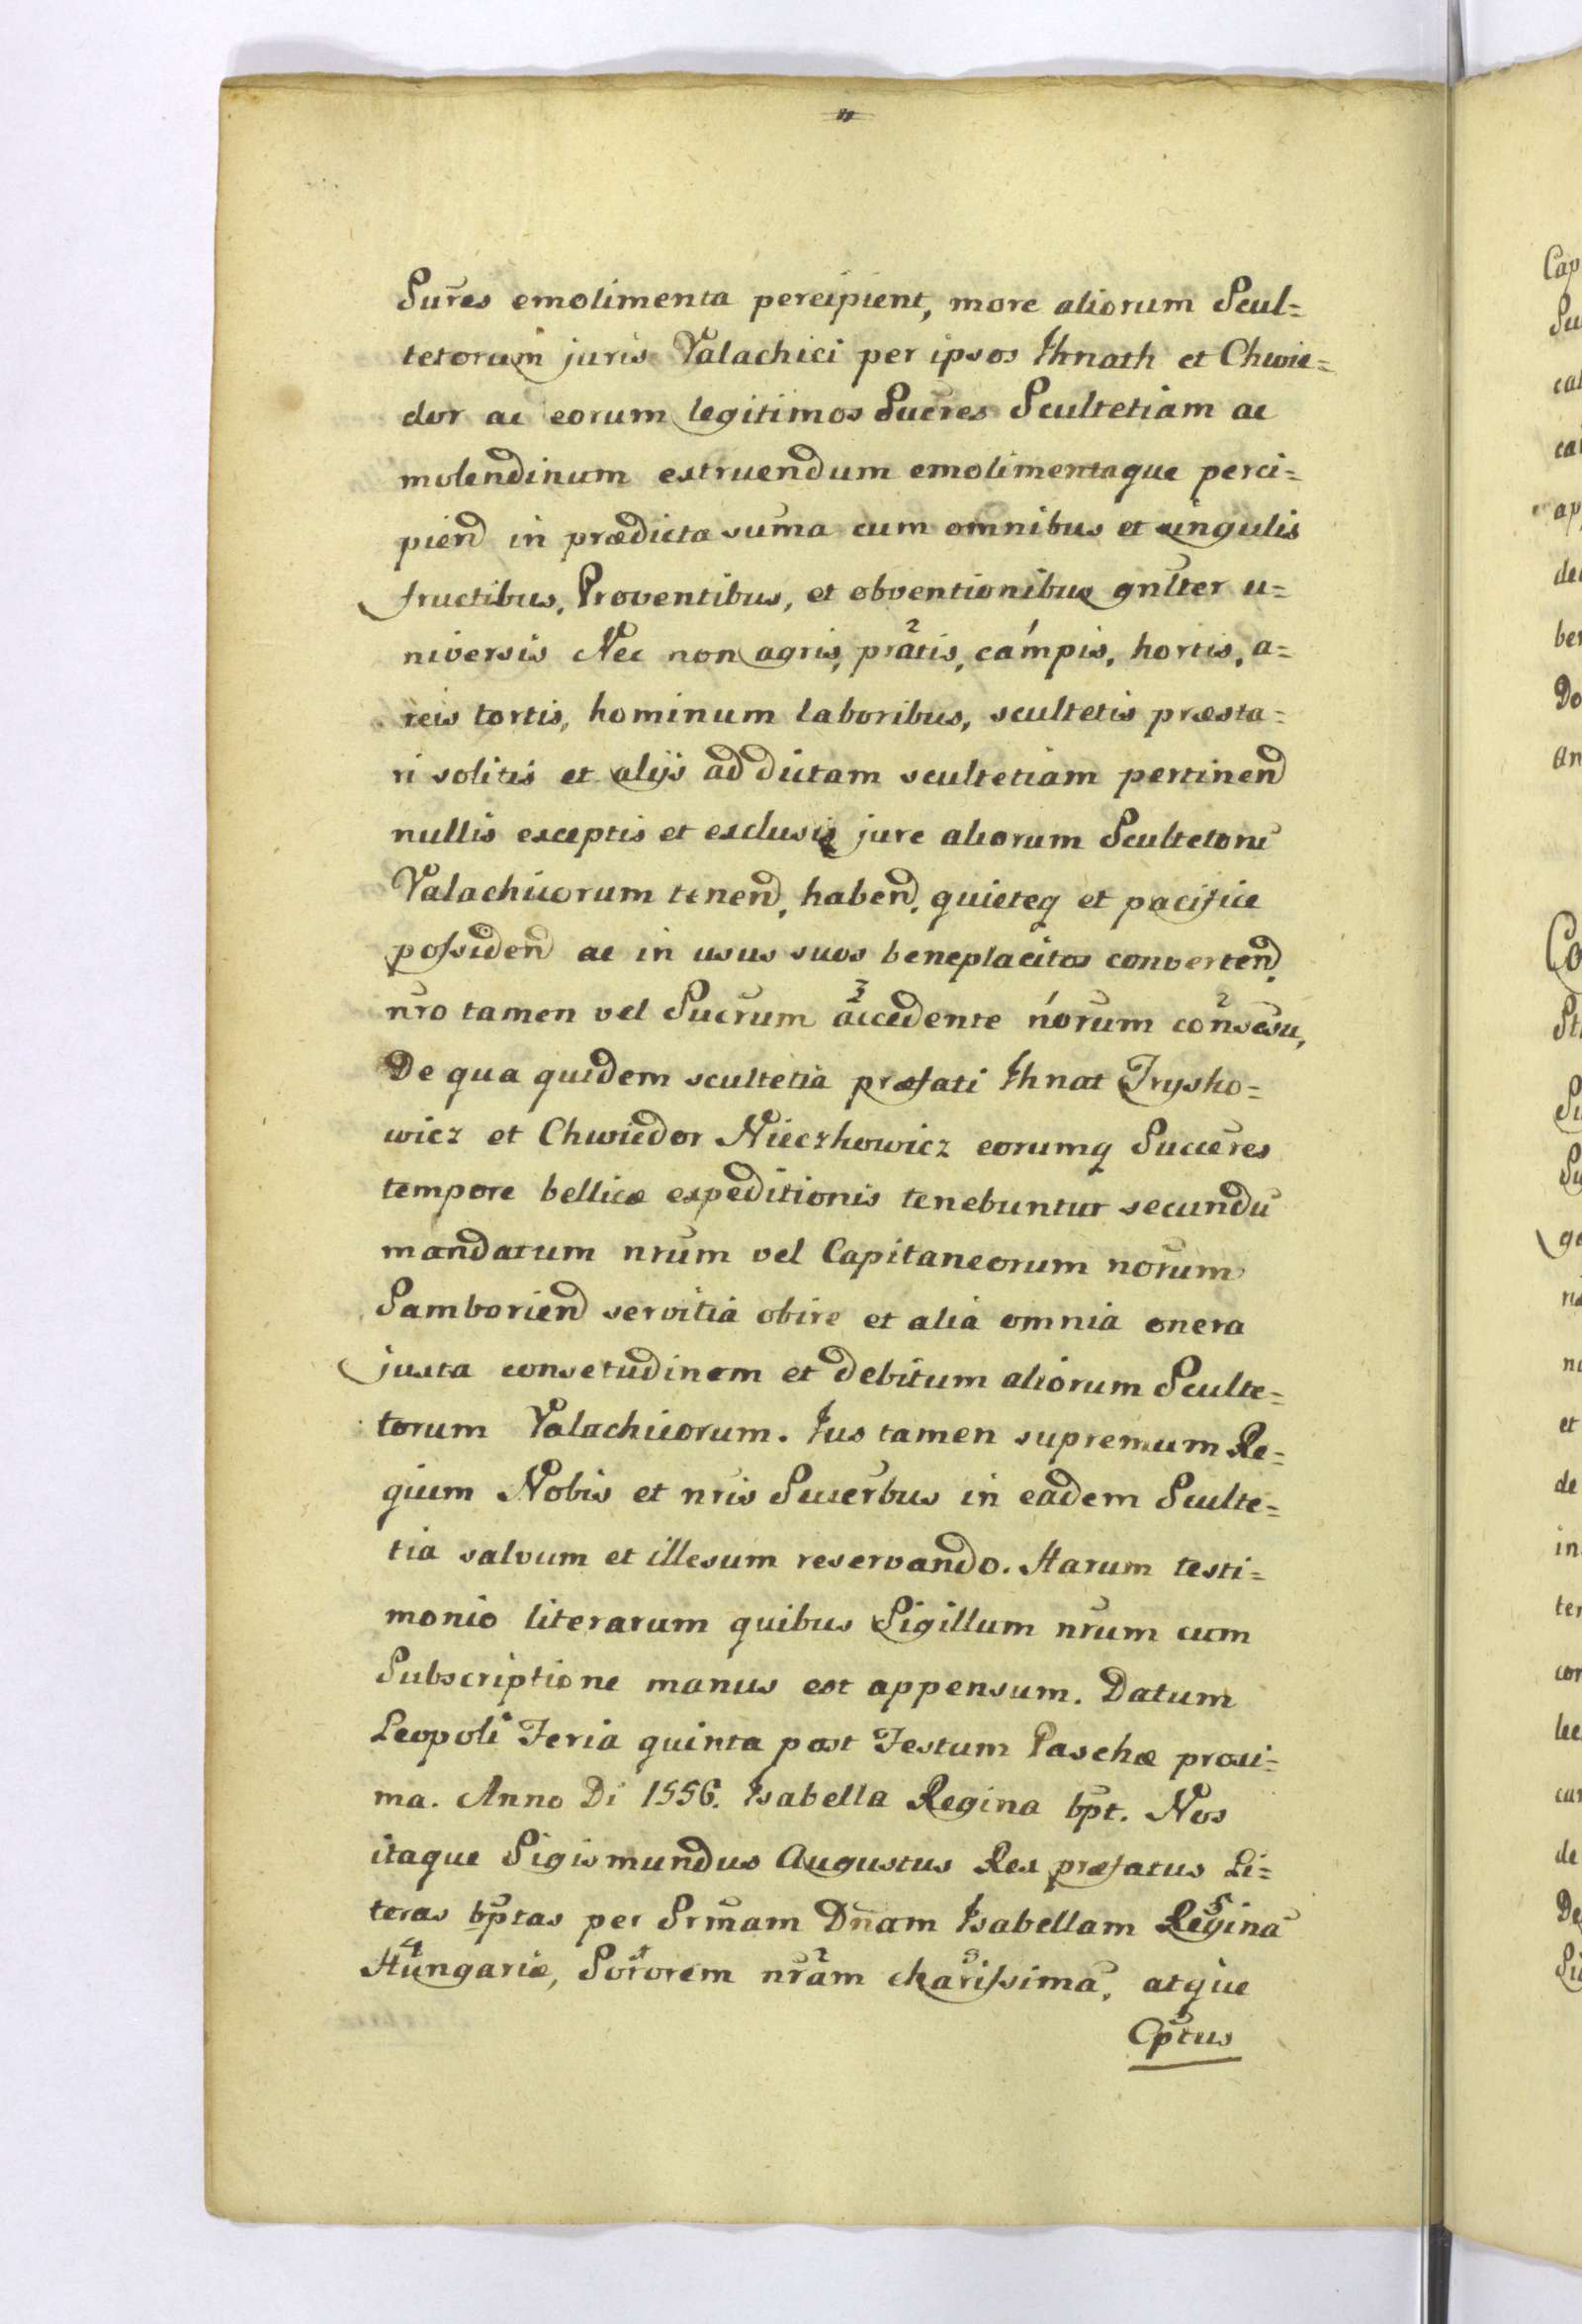 Sures emolimenta percipient, more aliorum Scul=
tetorum juris Valachici per ipsos Ihnath et Chwie=
dor ac eorum legitimos Sucres Scultetiam ac
molendinum extruendum emolimentaque perci=
piend in prædicta suma cum omnibus et singulis
fructibus, Proventibus, et obventionibus gnlter u=
niversis Nec non agris, pratis, campis, hortis, a=
reis tortis, hominum laboribus, scultetis præsta=
ri solitis et alijs ad dictam scultetiam pertinend
nullis exceptis et exclusis jure aliorum Scultetorū
Valachicorum tenend, habend, quieteq et pacifice
possidend ac in usus suos beneplacitos convertend,
nro tamen vel Sucrum accedente norum consesu,
De qua quidem scultetia præfati Ihnat Trysko=
wicz et Chwiedor Nieczkowicz eorumq Succeres
tempore bellicæ expeditionis tenebuntur secundū
mandatum nrum vel Capitaneorum norum
Samboriend servitia obire et alia omnia onera
juxta consetudinem et debitum aliorum Sculte=
torum Valachicorum. Ius tamen supremum Re=
gium Nobis et nris Sucerbus in eadem Sculte=
tia salvum et illesum reservando. Harum testi=
monio literarum quibus Sigillum nrum cum
Subscriptione manus est appensum. Datum
Leopoli Feria quinta post Festum Paschæ proxi=
ma. Anno Di 1556. Isabella Regina bpt. Nos
itaque Sigismundus Augustus Rex præfatus Li=
teras bptas per Srmam Dnam Isabellam Reginā
Hungariæ, Sororem nram charissimā, atque
Cptus
Cap
Su
cal
cai
ap
de
ber
Do
An
Co
St
Su
Su
ge
ni
no
et
de
in
ter
con
lee
car
de
De
Li